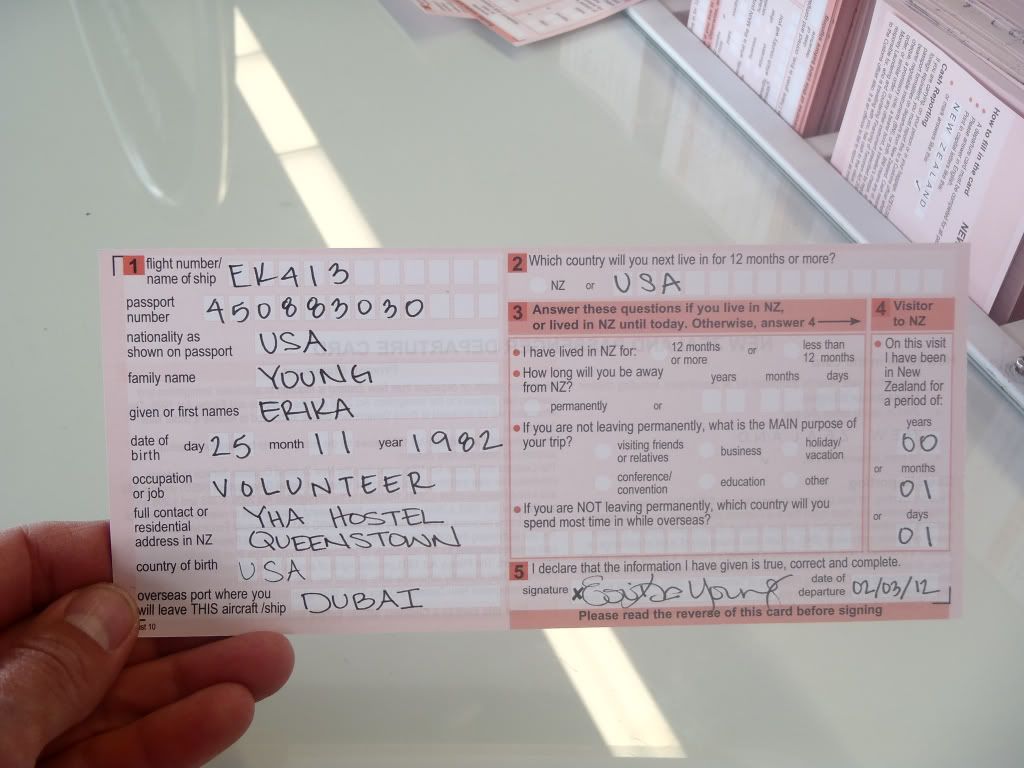 1 flight number/ name of ship EK413
passport number 450883030
nationality as shown on passport USA
family name YOUNG
given or first names ERIKA
date of birth day 25 month 11 year 1982
occupation or job VOLUNTEER
full contact or residential address in NZ YHA HOSTEL
QUEENSTOWN
country of birth USA
overseas port where you will leave THIS aircraft/ship DUBAI
2 Which country will you next live in for 12 months or more?
NZ or USA
3 Answer these questions if you live in NZ,
or lived in NZ until today. Otherwise, answer 4
• I have lived in NZ for: 12 months or more or less than 12 months
• How long will you be away from NZ? years months days
permanently or
• If you are not leaving permanently, what is the MAIN purpose of
your trip? visiting friends or relatives business holiday/ vacation
conference/ convention education other
• If you are NOT leaving permanently, which country will you
spend most time in while overseas?
4 Visitor
to NZ
• On this visit
I have been
in New
Zealand for
a period of:
years
00
or months
01
or days
01
5 I declare that the information I have given is true, correct and complete.
signature x Erika Young date of departure 02/03/12
Please read the reverse of this card before signing
How to fill in the card
NEW ZEALAND
Cash Reporting